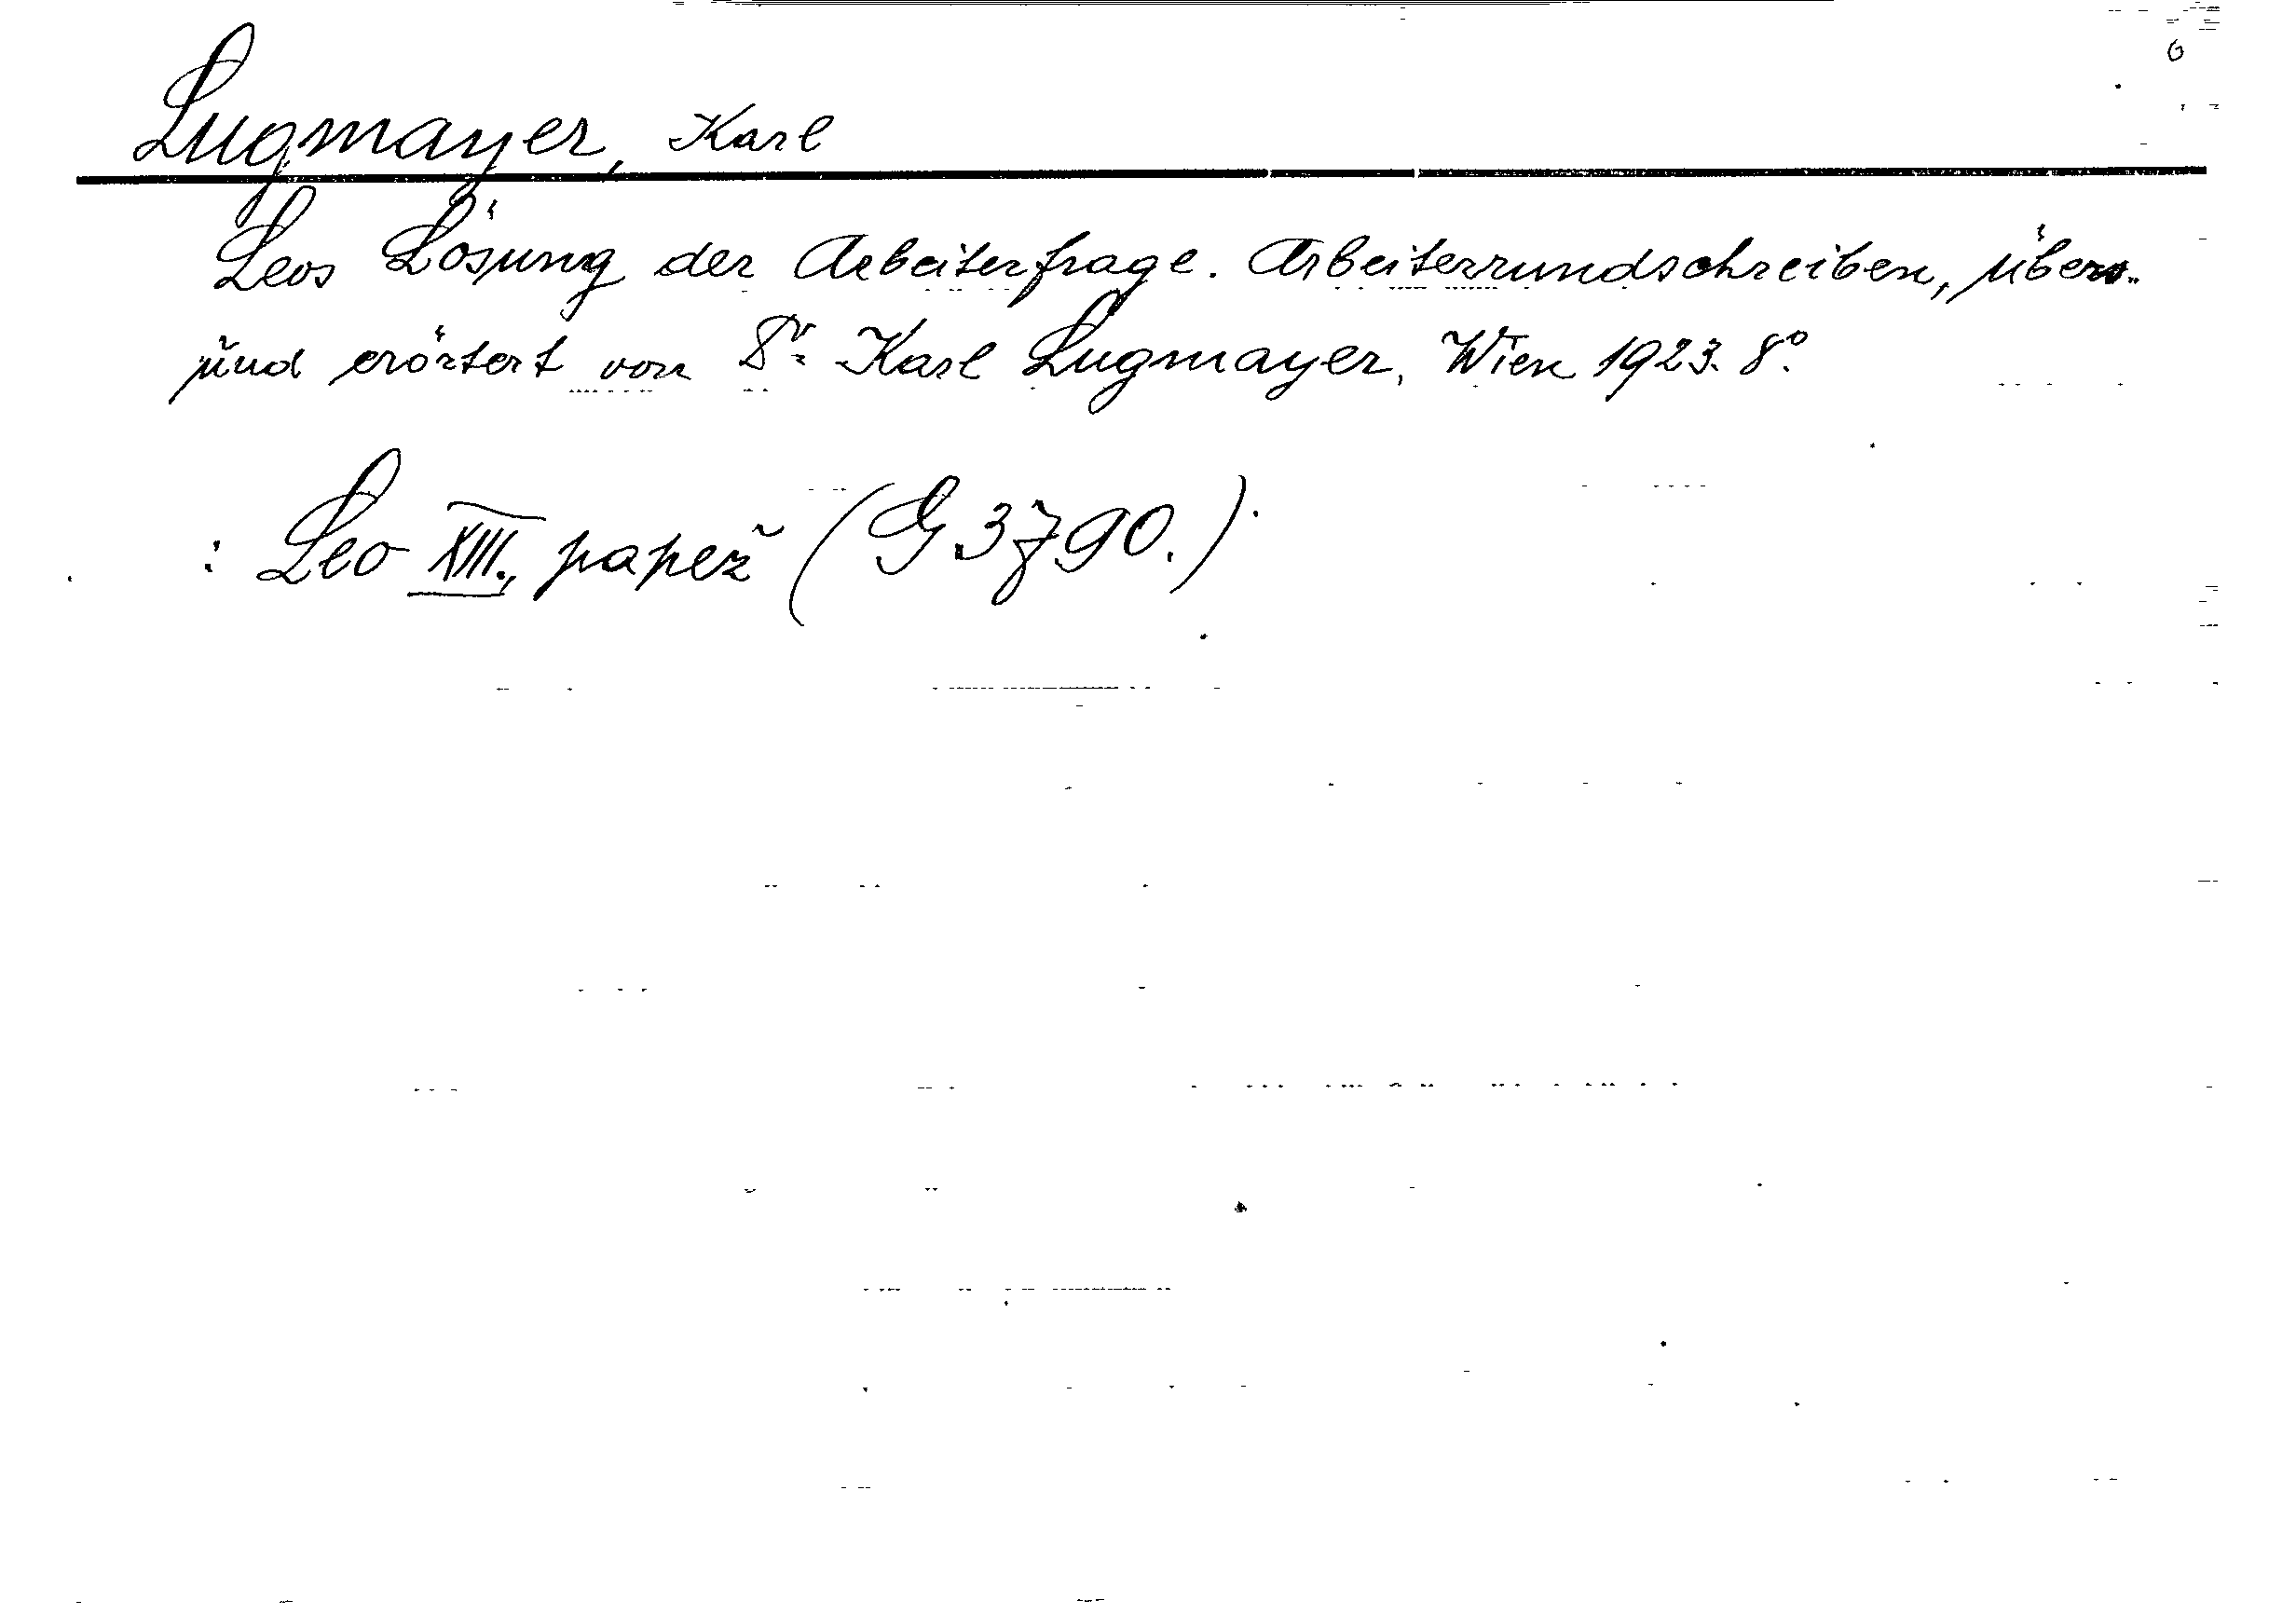 6
Lugmayer, Karl
Leos Lösung der Arbeiterfrage. Arbeiterrundschreiben, übers.
und erörtert von Dr. Karl Lugmayer, Wien 1923. 8°.
: Leo XIII., papež (G 3790.)